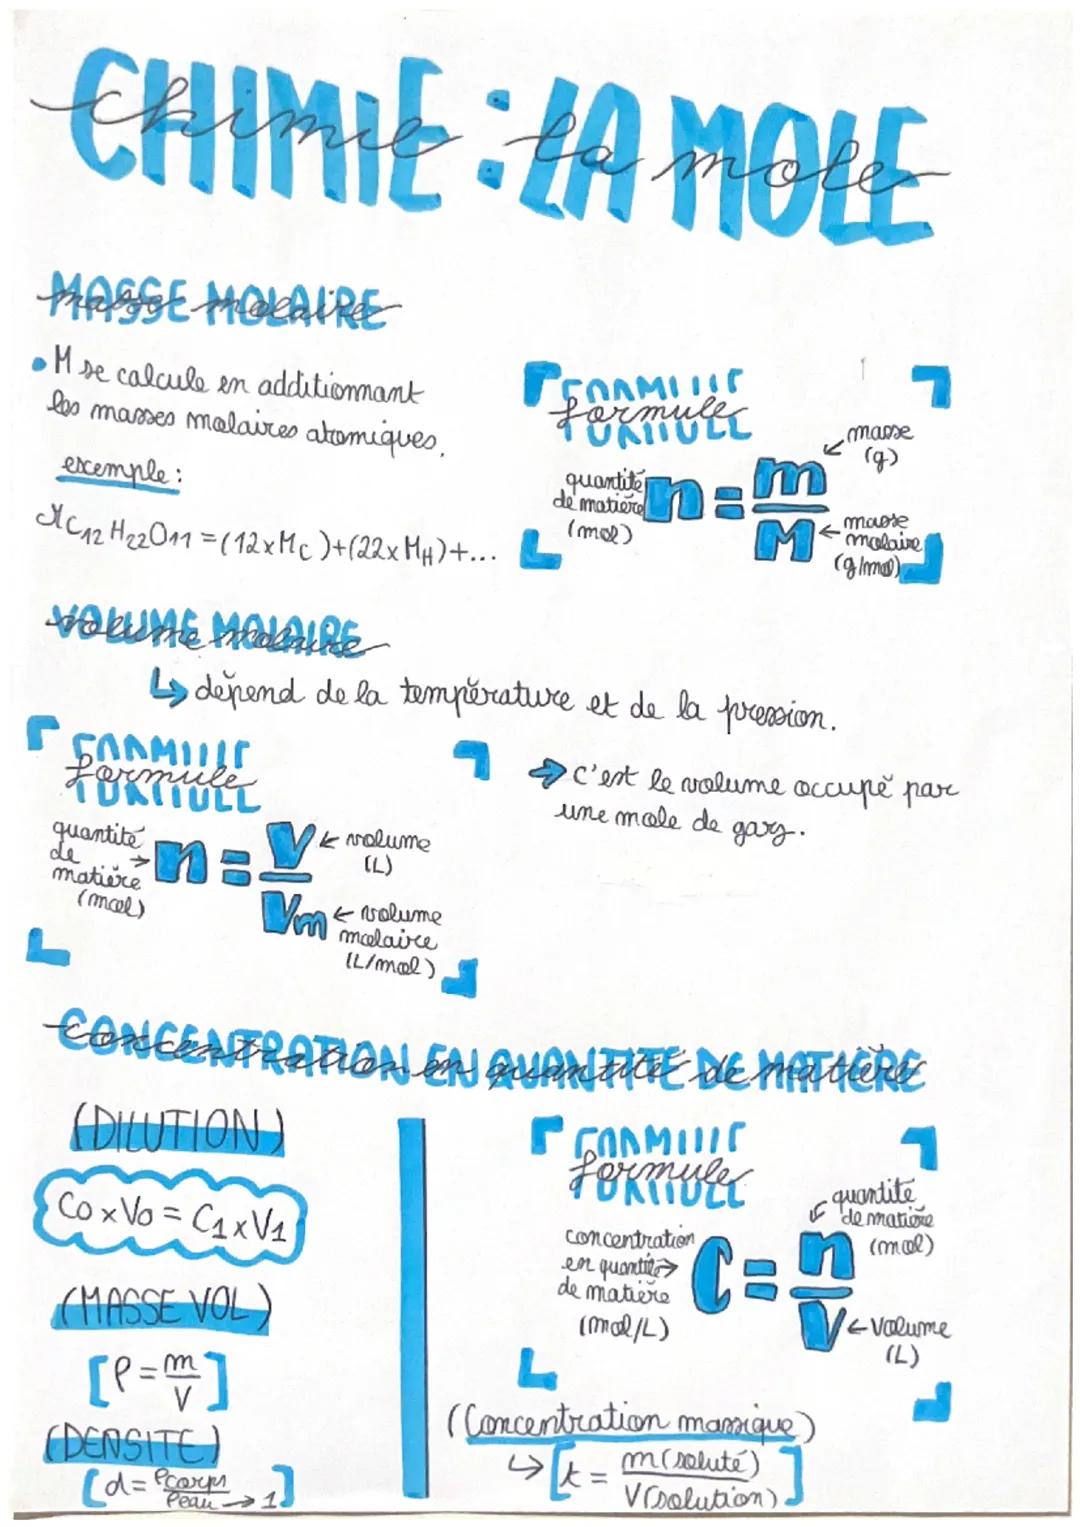 CHIMIE : LA MOLE
chimie la mole
MASSE MOLAIRE
masse molaire
• M se calcule en additionnant
les masses molaires atomiques.
exemple :
MC12H22O11 = (12xMC)+(22xMH)+...
FORMULE
formule
quantité
de matière
(mol)
n = m/M
masse
(g)
masse
molaire
(g/mol)
VOLUME MOLAIRE
volume molaire
↳ dépend de la température et de la pression.
FORMULE
formule
quantité
de
matière
(mol)
→ n = V/Vm
← volume
(L)
← volume
molaire
(L/mol)
→ C'est le volume occupé par
une mole de gaz.
CONCENTRATION EN QUANTITÉ DE MATIÈRE
concentration en quantité de matière
(DILUTION)
C0 x V0 = C1 x V1
(MASSE VOL)
[ρ = m/V]
(DENSITE)
[d = ρcorps/ρeau → 1]
FORMULE
formule
concentration
en quantité →
de matière
(mol/L)
C = n/V
quantité
de matière
(mol)
← Volume
(L)
(Concentration massique)
↳ [t = m(soluté)/V(solution)]